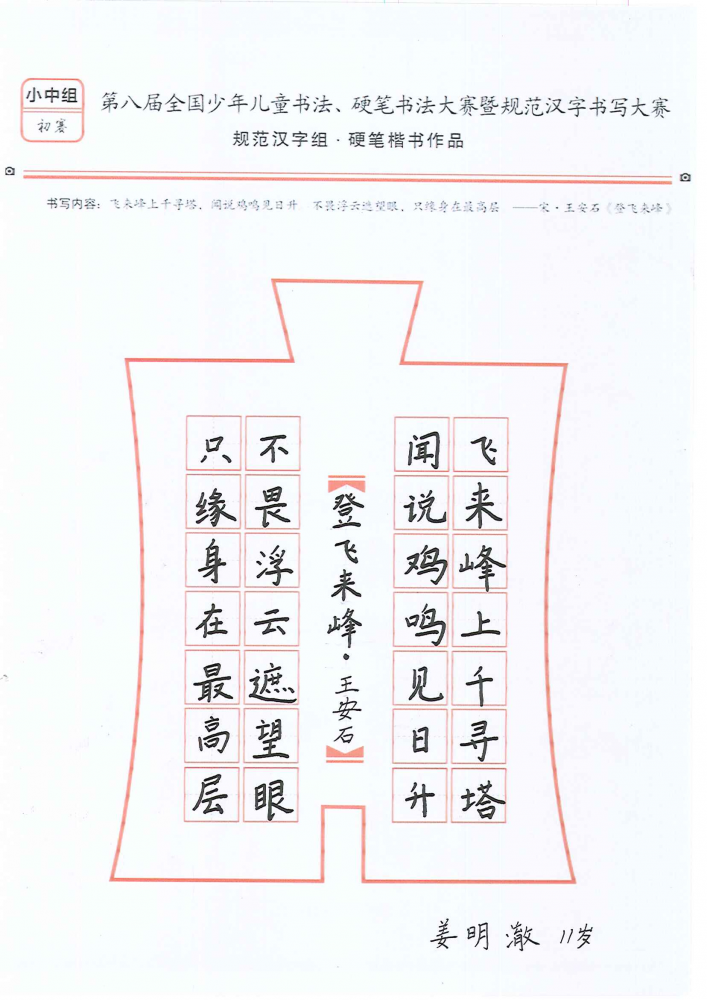 小中组
初赛
第八届全国少年儿童书法、硬笔书法大赛暨规范汉字书写大赛
规范汉字组·硬笔楷书作品
书写内容：飞来峰上千寻塔，闻说鸡鸣见日升。不畏浮云遮望眼，只缘身在最高层。——宋·王安石《登飞来峰》
飞来峰上千寻塔
闻说鸡鸣见日升
登飞来峰·王安石
不畏浮云遮望眼
只缘身在最高层
姜明澈 11岁